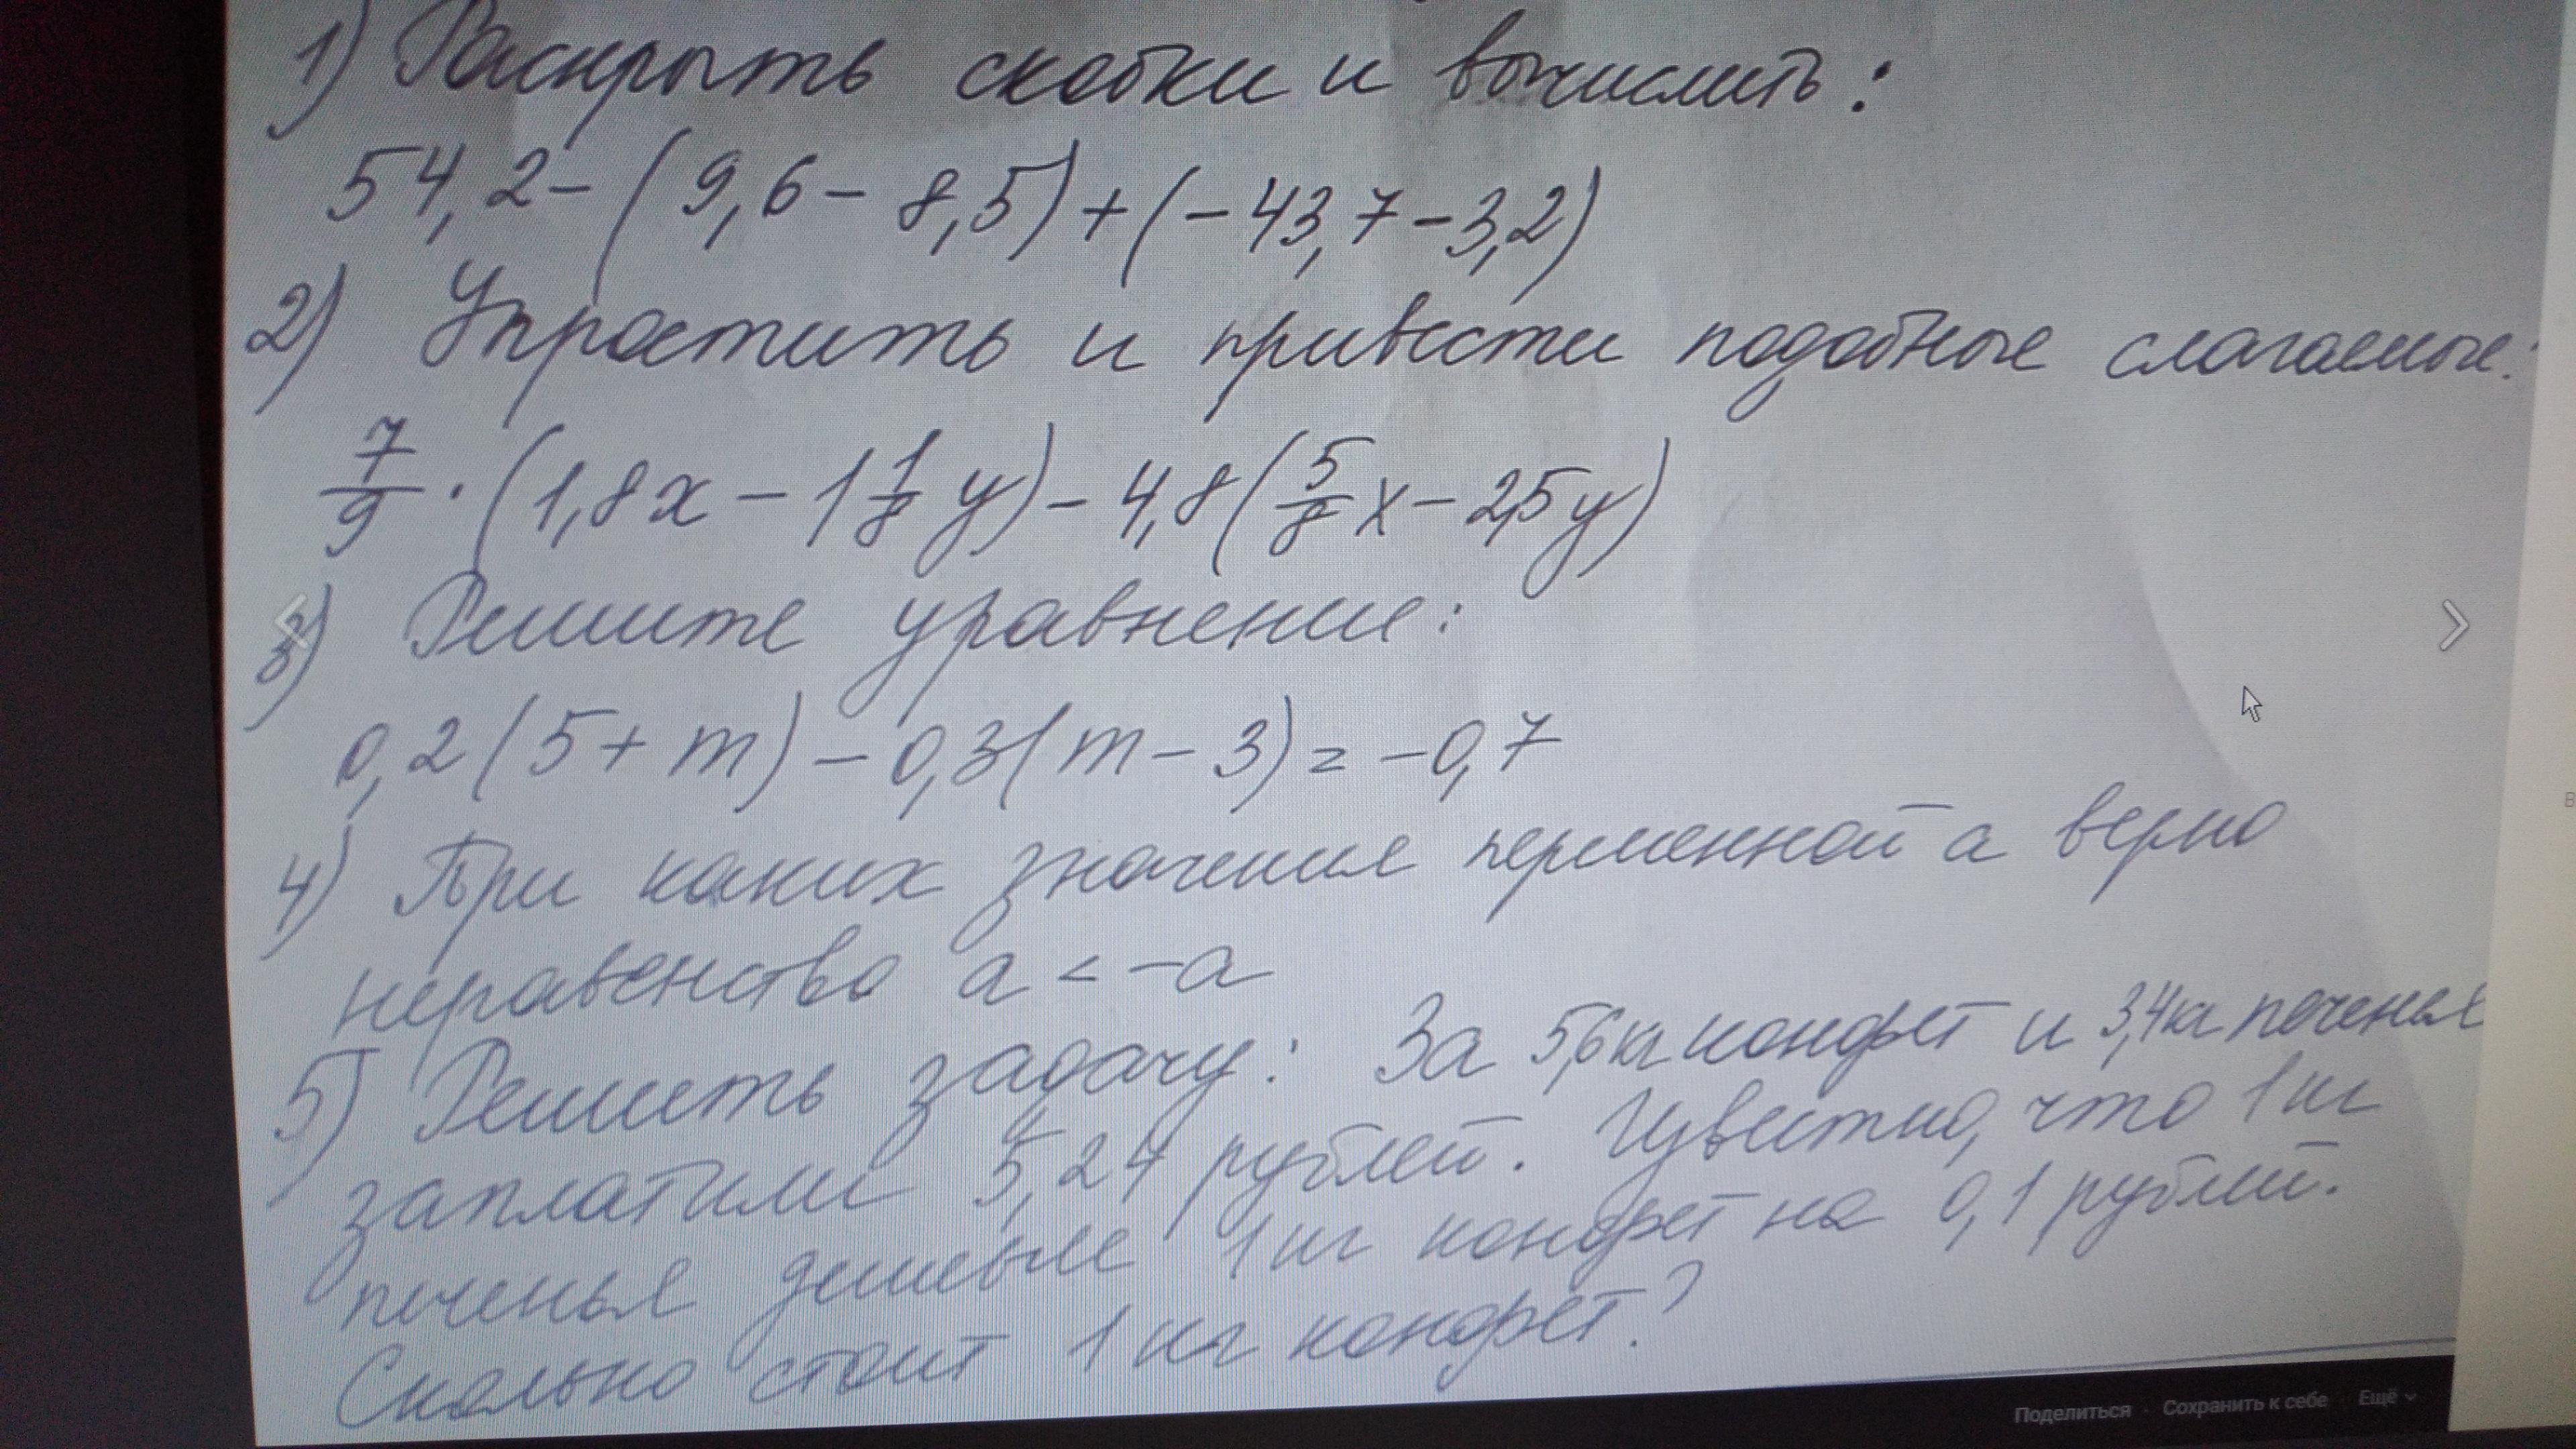 1) Раскрыть скобки и вычислить:
54,2 - (9,6 - 8,5) + (-43,7 - 3,2)
2) Упростить и привести подобные слагаемые:
7/9 · (1,8x - 1 1/8 y) - 4,8 (5/8 x - 2,5y)
3) Решите уравнение:
0,2 (5 + m) - 0,3 (m - 3) = -0,7
4) При каких значения перменной а верно
неравенство a < -a
5) Решить задачу: За 5,6 кг конфет и 3,4 кг печенья
заплатили 5,24 рублей. Известно, что 1 кг
печенья дешевле 1 кг конфет на 0,1 рублей.
Сколько стоит 1 кг конфет?
Поделиться · Сохранить к себе · Ещё